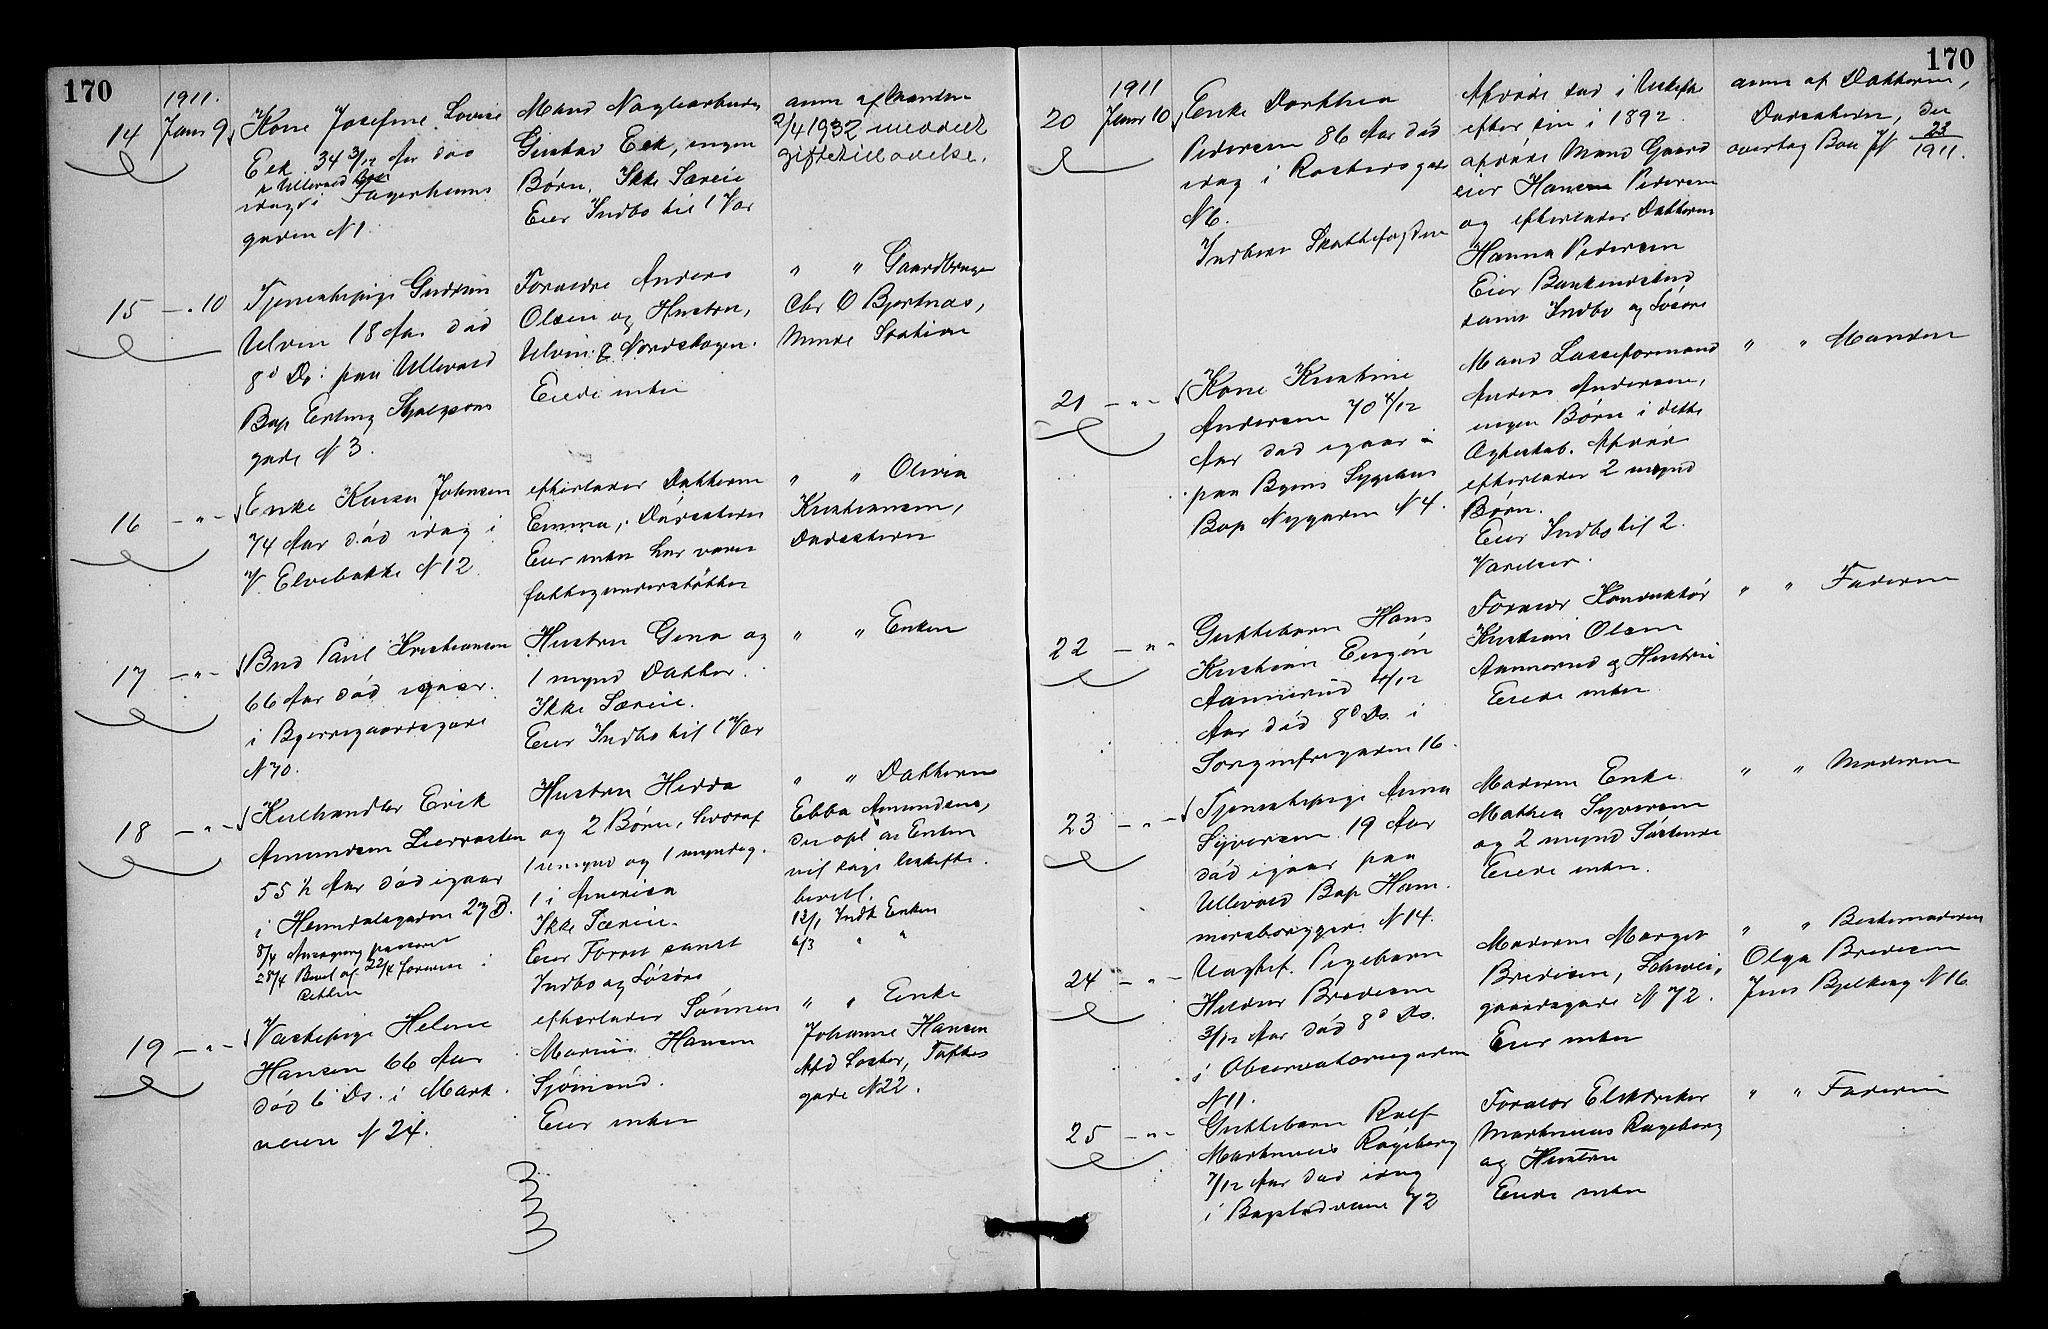 170
1911.
14 Janr 9. Kone Josefine Lovise
Eek 34 3/12 Aar død
p Ullevaal Bop
idag i Fagerheims
gaden N 1
Mand Naglearbeider
Gustav Eek, ingen
Børn. Ikke Særeie
Eier Indbo til 1 Vær
anm af Manden
2/4 1932 meddelt
giftetilladelse.
15 — . 10 Tjenestepige Gudrun
Ulven 18 Aar død
8d Ds: paa Ullevaal
Bop Erling Skjalgsons
gade N 3.
Forældre Anders
Olsen og Hustru,
Ulven, Nordskogen.
Eiede intet
" " Gaardbruger
Chr O Bjertnæs,
Minde Station
16 — " — Enke Karen Johnsen
74 Aar død idag i
V. Elvebakke N 12
efterlader Datteren
Emma, Dødsstedet
Eier intet har været
fattigunderstøttet
" " Olivia
Kristiansen,
Dødsstedet
17 — " — Bud Paul Kristiansen
66 Aar død igaar
i Bjerregaardsgade
N 70.
Hustru Gina og
1 mynd Datter.
Ikke Særeie.
Eier Indbo til 1 Vær
" " Enken
18 — " — Kulhandler Erik
Amundsen Lierrosten
55 1/2 Aar død igaar
i Heimdalsgaden 27 B.
8/4 Ansøgning passeret
28/4 Bevil af 22/4 foreviist i
Retten
Hustru Hedda
og 2 Børn, hvoraf
1 umynd og 1 myndig.
1 i Amerika
Ikke Særeie.
Eier Forret. samt
Indbo og Løsøre
" " Datteren
Ebba Amundsen,
der opl at Enken
vil søge uskifte
bevill.
12/1 Indk Enken
6/3 " "
19 — " — Vaskepige Helene
Hansen 66 Aar
død 6 Ds. i Mark
veien N 24.
efterlader Sønnen
Marius Hansen
Sjømand.
Eier intet
" " Enke
Johanne Hansen
Afd Søster, Toftes
gade N 22.
170
1911
20 Janr 10 Enke Dorthea
Pedersen 86 Aar død
idag i Rostedsgade
N 6.
Indhent Skatteforkl
Afdøde sad i Uskifte
efter sin i 1892
afdøde Mand Gaard
eier Hans Pedersen
og efterlader Datteren
Hanna Pedersen
Eier Bankindskud
samt Indbo og Løsøre
anm af Datteren,
Dødsstedet, der
overtog Boet Jf 23/1911.
21 — " — Kone Kristine
Andersen 70 4/12
Aar død igaar
paa Byens Sygehus
Bop Nygaden N 4.
Mand Losseformand
Anders Andersen,
ingen Børn i dette
Ægteskab. Afdøde
efterlader 2 mynd
Børn.
Eier Indbo til 2
Værelser.
" " Manden
22 — " — Guttebarn Hans
Kristian Eugen
Aannerud 4/12
Aar død 8d Ds. i
Sorgenfrigaden 16.
Forældr Konduktør
Kristian Olsen
Aannerud og Hustru
Eiede intet
" " Faderen
23 — " — Tjenestepige Anna
Syversen 19 Aar
død igaar paa
Ullevaal Bop Ham
mersborggade N 14.
Moderen Enke
Mathea Syversen
og 2 mynd Søskende
Eiede intet.
" " Moderen
24 — " — Uægtef. Pigebarn
Hildur Bredesen
3/12 Aar død 8d Ds.
i Observatoriegaden
N 11.
Moderen Margit
Bredesen, Schwei
gaardsgade N 72.
Eier intet
" " Bestemoderen
Olga Bredesen
Jens Bjelkesg N 16.
25 — " — Guttebarn Rolf
Martinius Rogeberg
7/12 Aar død idag
i Bogstadveien 72
Forældr Elektriker
Martinius Rogeberg
og Hustru
Eiede intet
" " Faderen